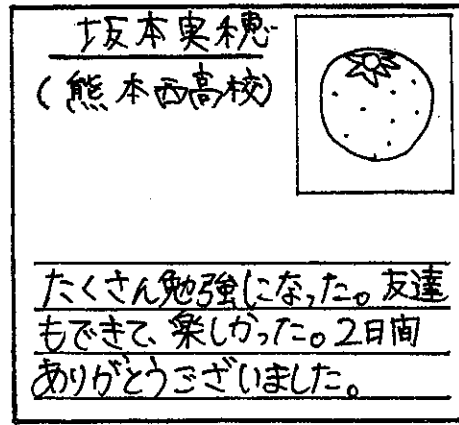 坂本実穂
(熊本西高校)
たくさん勉強になった。友達
もできて、楽しかった。2日間
ありがとうございました。